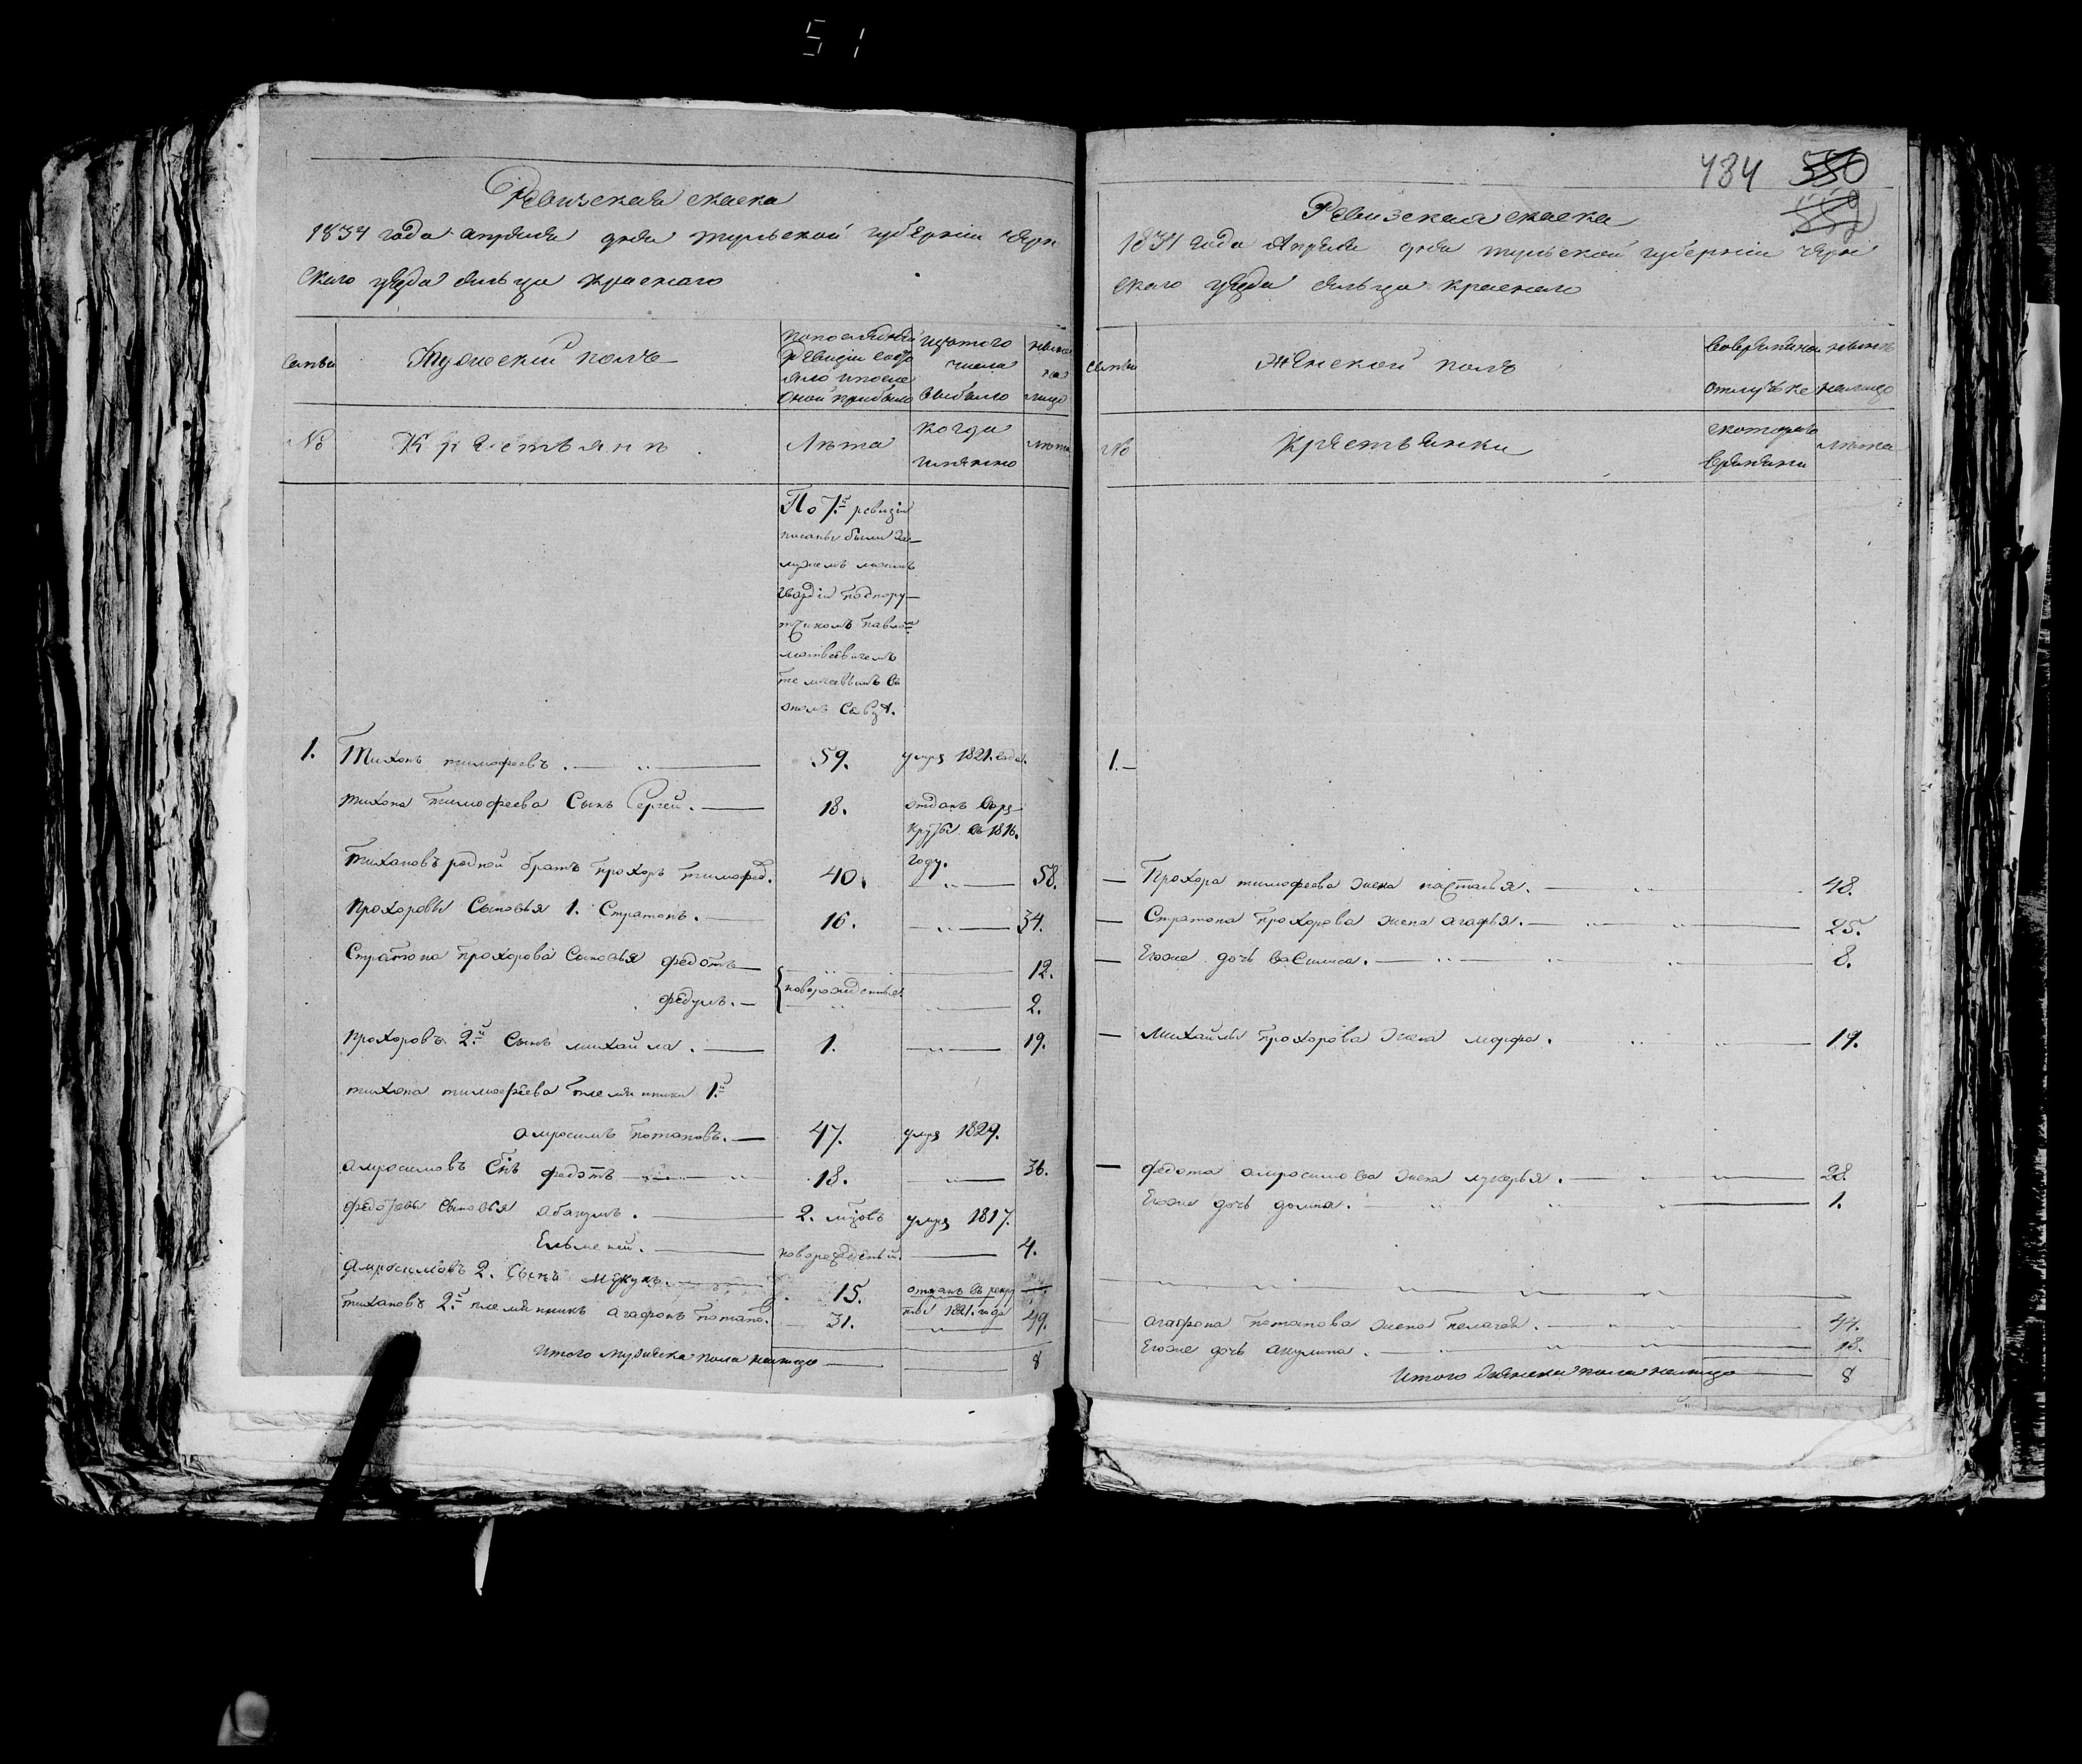 51
Ревизская скаска
1834 года апреля дня тульской губернiи черн
скаго уезда сельца краснаго
семьи
Мужеский полъ
по последней ревизiи состояло и после оной прибыло
изтого числа выбыло
ныне на лицо
№
Крестьяне
Лета
когда имянно
лета
По 7.й ревизiи
писаны были за
мужемъ моимъ
гвардiи подпору—
тчикомъ павло.м
матвеевичемъ
въ
ономъ сельце.
1. Тихонъ тимофеевъ. 59. умре 1821. года.
тихона тимофеева Сынъ Сергей. 18. отданъ въ ре
круты въ 1816.
году.
тихановъ родной братъ прохоръ тимофее. 40. 58.
прохоровы Сыновья 1. Стратонъ. 16. 34.
Стратона прохорова Сыновья федотъ 12.
новорожденные
федулъ. 2.
прохоровъ 2.й Сынъ михайла. 1. 19.
тихона тимофеева племянники 1.й
амросимъ потаповъ. 47. умре 1829.
амросимовъ Снъ федотъ 18. 36.
федотовы сыновья абакумъ. 2. мцовъ умре 1817.
новорожденый. 4.
амросимовъ 2. Сынъ 15. отданъ въ рекру
ты 1821. года
тихановъ 2.й племянникъ агафонъ потапо. 31. 49.
Итого мужеска пола налицо 8
484 550
552
Ревизская скаска
1834 года Апреля дня тульской губернiи черн
скаго уезда сельца краснаго
семьи
Женской полъ
во временной отлучке
ныне налицо
№
Крестьянки
скотораго времяни
лета
1.
Прохора тимофеева жена настасья. 48.
Стратона прохорова жена агафья. 25.
Егоже дочь василиса. 8.
Михайлы прохорова жена марфа. 19.
федота амросимова жена лукерья. 28.
Егоже дочь домна. 1.
агафона потапова жена пелагея. 44.
Егоже дочь акулина. 18.
Итого женска пола налицо 8